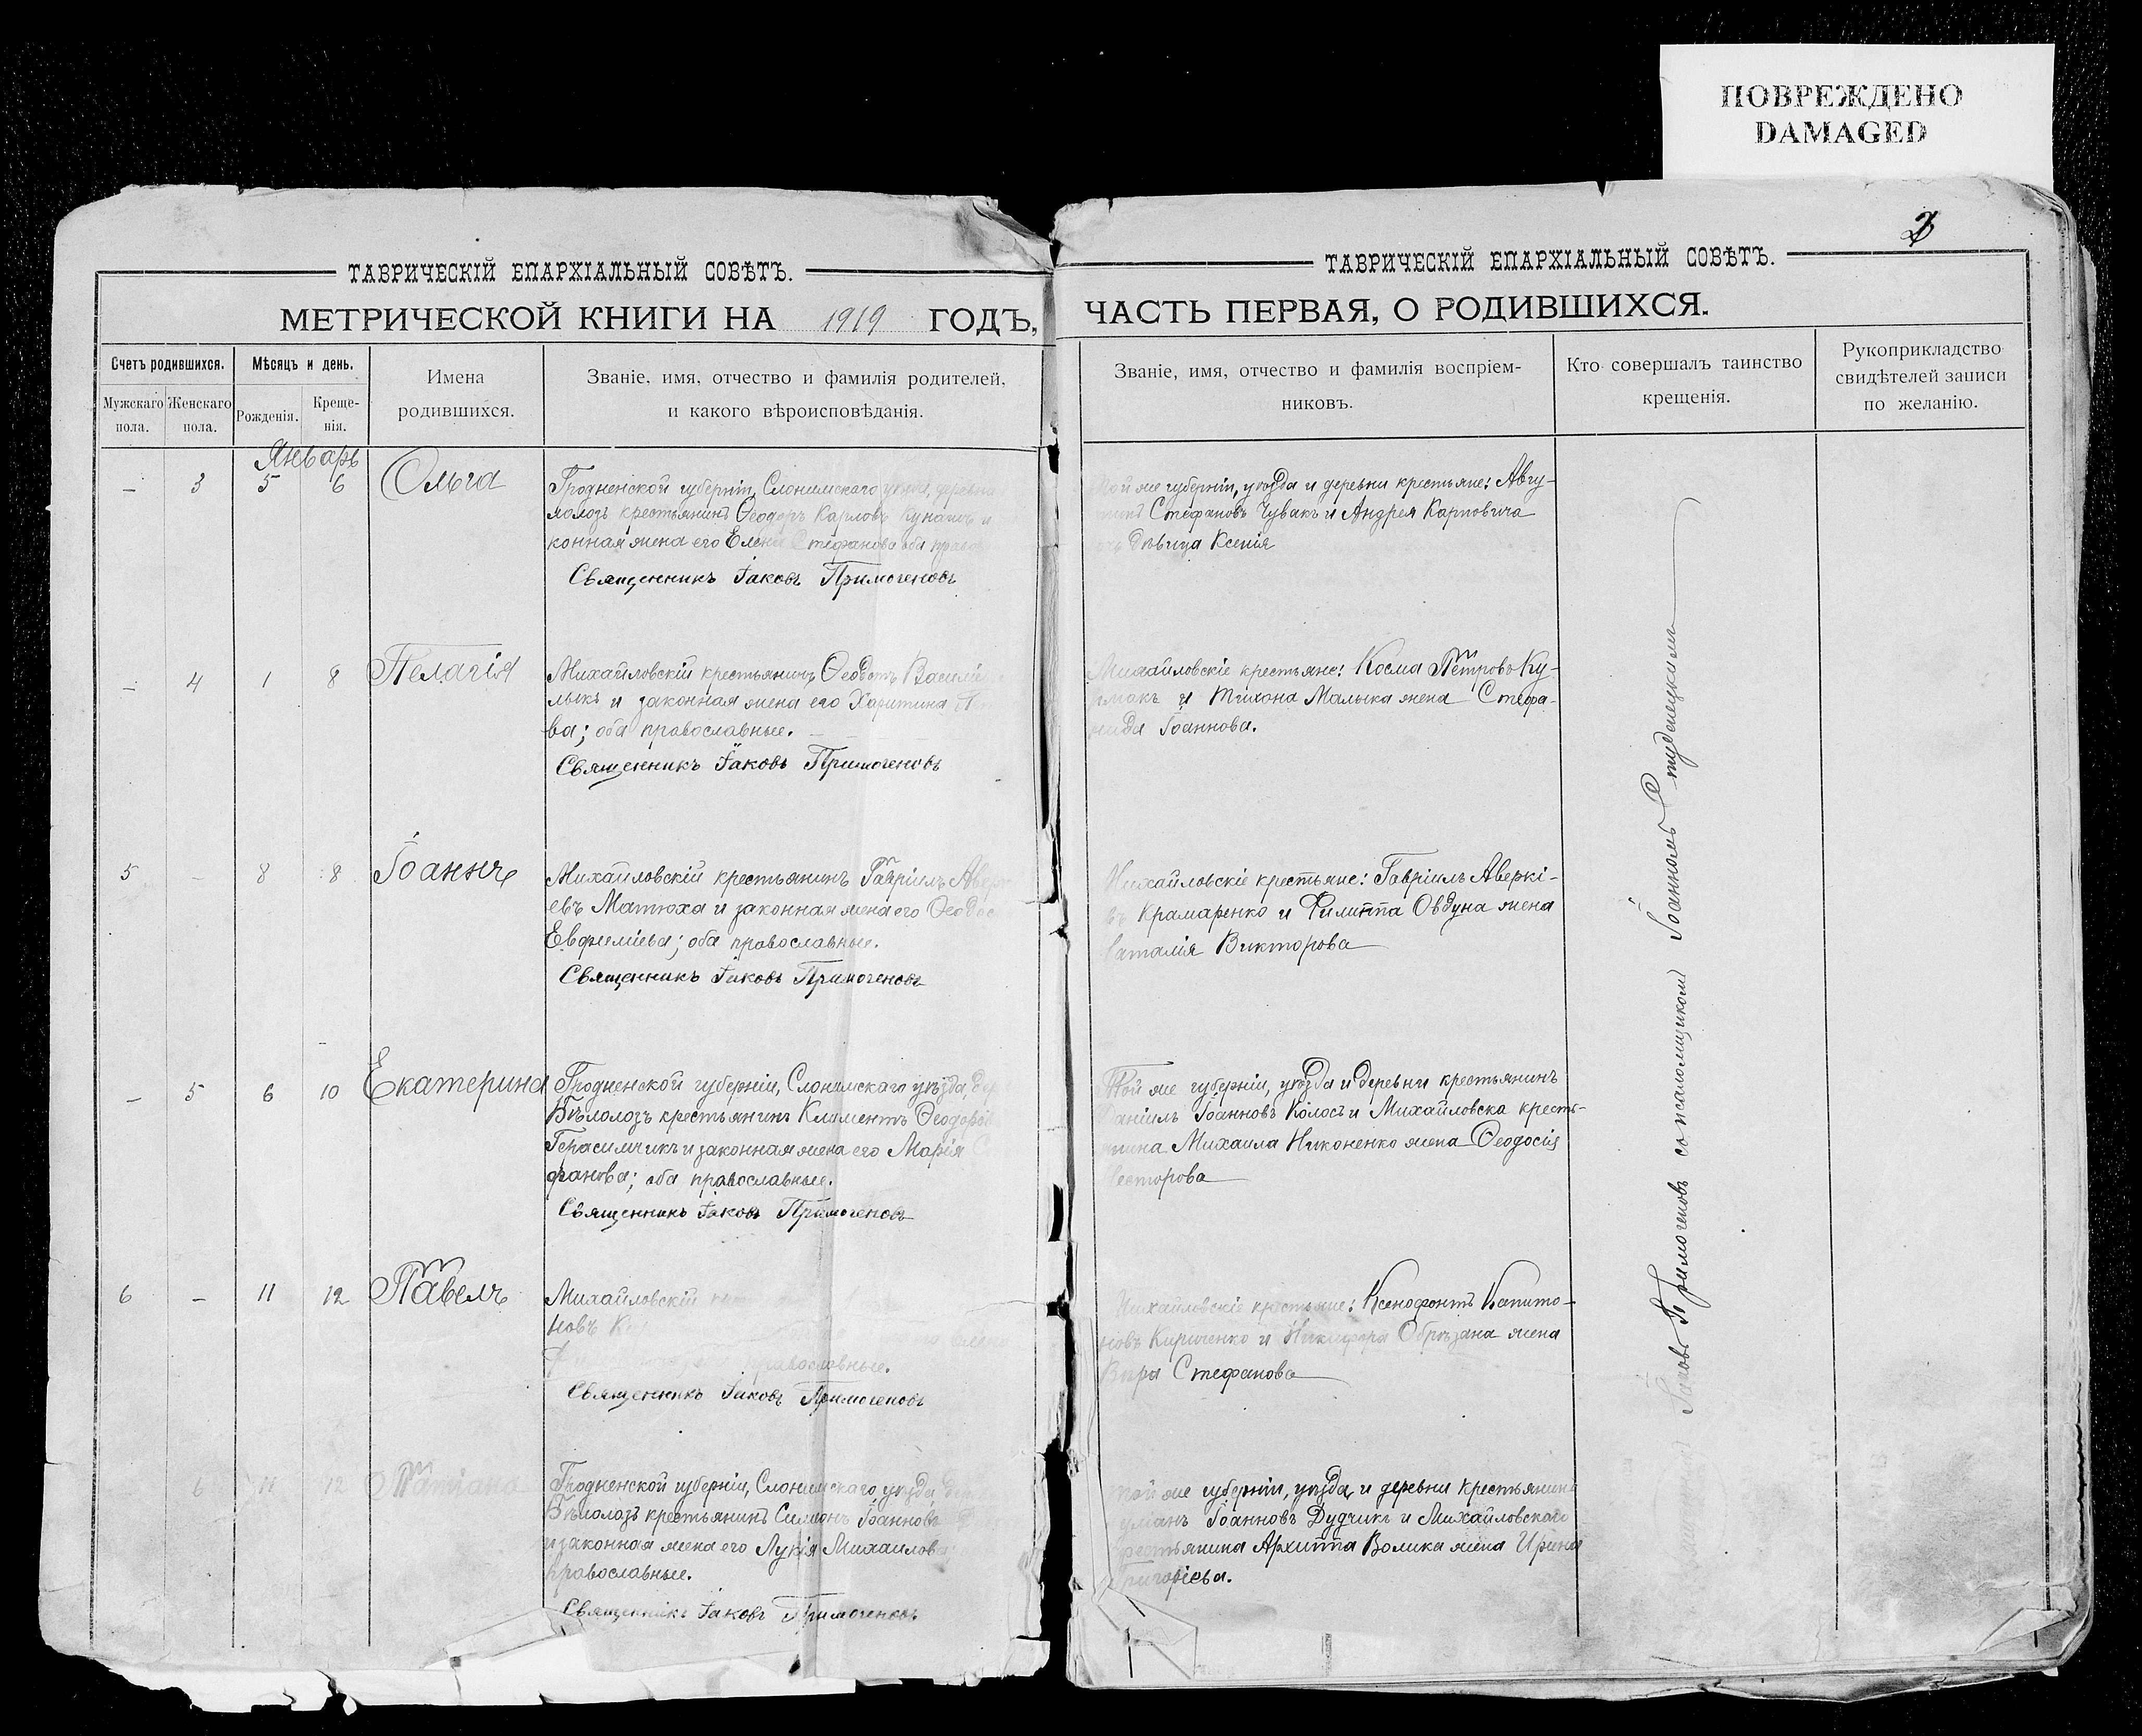 ПОВРЕЖДЕНО
DAMAGED
2
ТАВРИЧЕСКІЙ ЕПАРХІАЛЬНЫЙ СОВѢТЪ.
МЕТРИЧЕСКОЙ КНИГИ НА 1919 ГОДЪ,
Счетъ родившихся.
Мѣсяцъ и день.
Имена
родившихся.
Званіе, имя, отчество и фамилія родителей,
и какого вѣроисповѣданія.
Мужскаго
пола.
Женскаго
пола.
Рожденія.
Креще-
нія.
Январь
— 3 5 6 Ольга
Гродненской губерніи, Слонимскаго уѣзда, деревни
лолозъ крестьянинъ Ѳеодоръ Карловъ Кунашъ и
конная жена его Елена Стефанова оба право
Священникъ Іаковъ Примогеновъ
— 4 1 8 Пелагія
Михайловскій крестьянинъ Ѳеодотъ Василі
лыкъ и законная жена его Харитина
ва; оба православные.
Священникъ Іаковъ Примогеновъ
5 — 8 8 Іоаннъ
Михайловскій крестьянинъ Гавріилъ Аверк
евъ Матюха и законная жена его Ѳеодос
Евфиміева; оба православные.
Священникъ Іаковъ Примогеновъ
— 5 6 10 Екатерина
Гродненской губерніи, Слонимскаго уѣзда, дер
Бѣлолозъ крестьянинъ Климентъ Ѳеодоров
Герасимчикъ и законная жена его Марія С
фанова; оба православные.
Священникъ Іаковъ Примогеновъ
6 — 11 12 Павелъ
Михайловскій
новъ
православные.
Священникъ Іаковъ Примогеновъ
6 11 12 Татіана
Гродненской губерніи, Слонимскаго уѣзда, дер
Бѣлолозъ крестьянинъ Симеонъ Іоанновъ
и законная жена его Лукія Михаилова;
православные.
Священникъ Іаковъ Примогеновъ
ТАВРИЧЕСКІЙ ЕПАРХІАЛЬНЫЙ СОВѢТЪ.
ЧАСТЬ ПЕРВАЯ, О РОДИВШИХСЯ.
Званіе, имя, отчество и фамилія воспріем-
никовъ.
Кто совершалъ таинство
крещенія.
Рукоприкладство
свидѣтелей записи
по желанію.
той же губерніи, уѣзда и деревни крестьяне: Авгу-
стинъ Стефановъ Чувакъ и Андрея Карповича
дѣвица Ксенія
Михайловскіе крестьяне: Косма Петровъ Ку-
лмакъ и Тихона Малыка жена Стефа-
нида Іоаннова.
Михайловскіе крестьяне: Гавріилъ Аверкі-
въ Крамаренко и Филиппа Овдуна жена
Наталія Викторова
Той же губерніи, уѣзда и деревни крестьянинъ
Даніилъ Іоанновъ Колосъ и Михайловска кресть-
янина Михаила Никоненко жена Ѳеодосія
Несторова
Михайловскіе крестьяне: Ксенофонтъ Капито-
новъ Кириченко и Никифора Обрѣзана жена
Вѣра Стефанова
той же губерніи, уѣзда, и деревни крестьянинъ
уліанъ Іоанновъ Дудчикъ и Михайловскаго
крестьянина Архиппа Волика жена Ирина
Григоріева.
Іаковъ Примогеновъ съ псаломщикомъ Іоанномъ Студенецкимъ